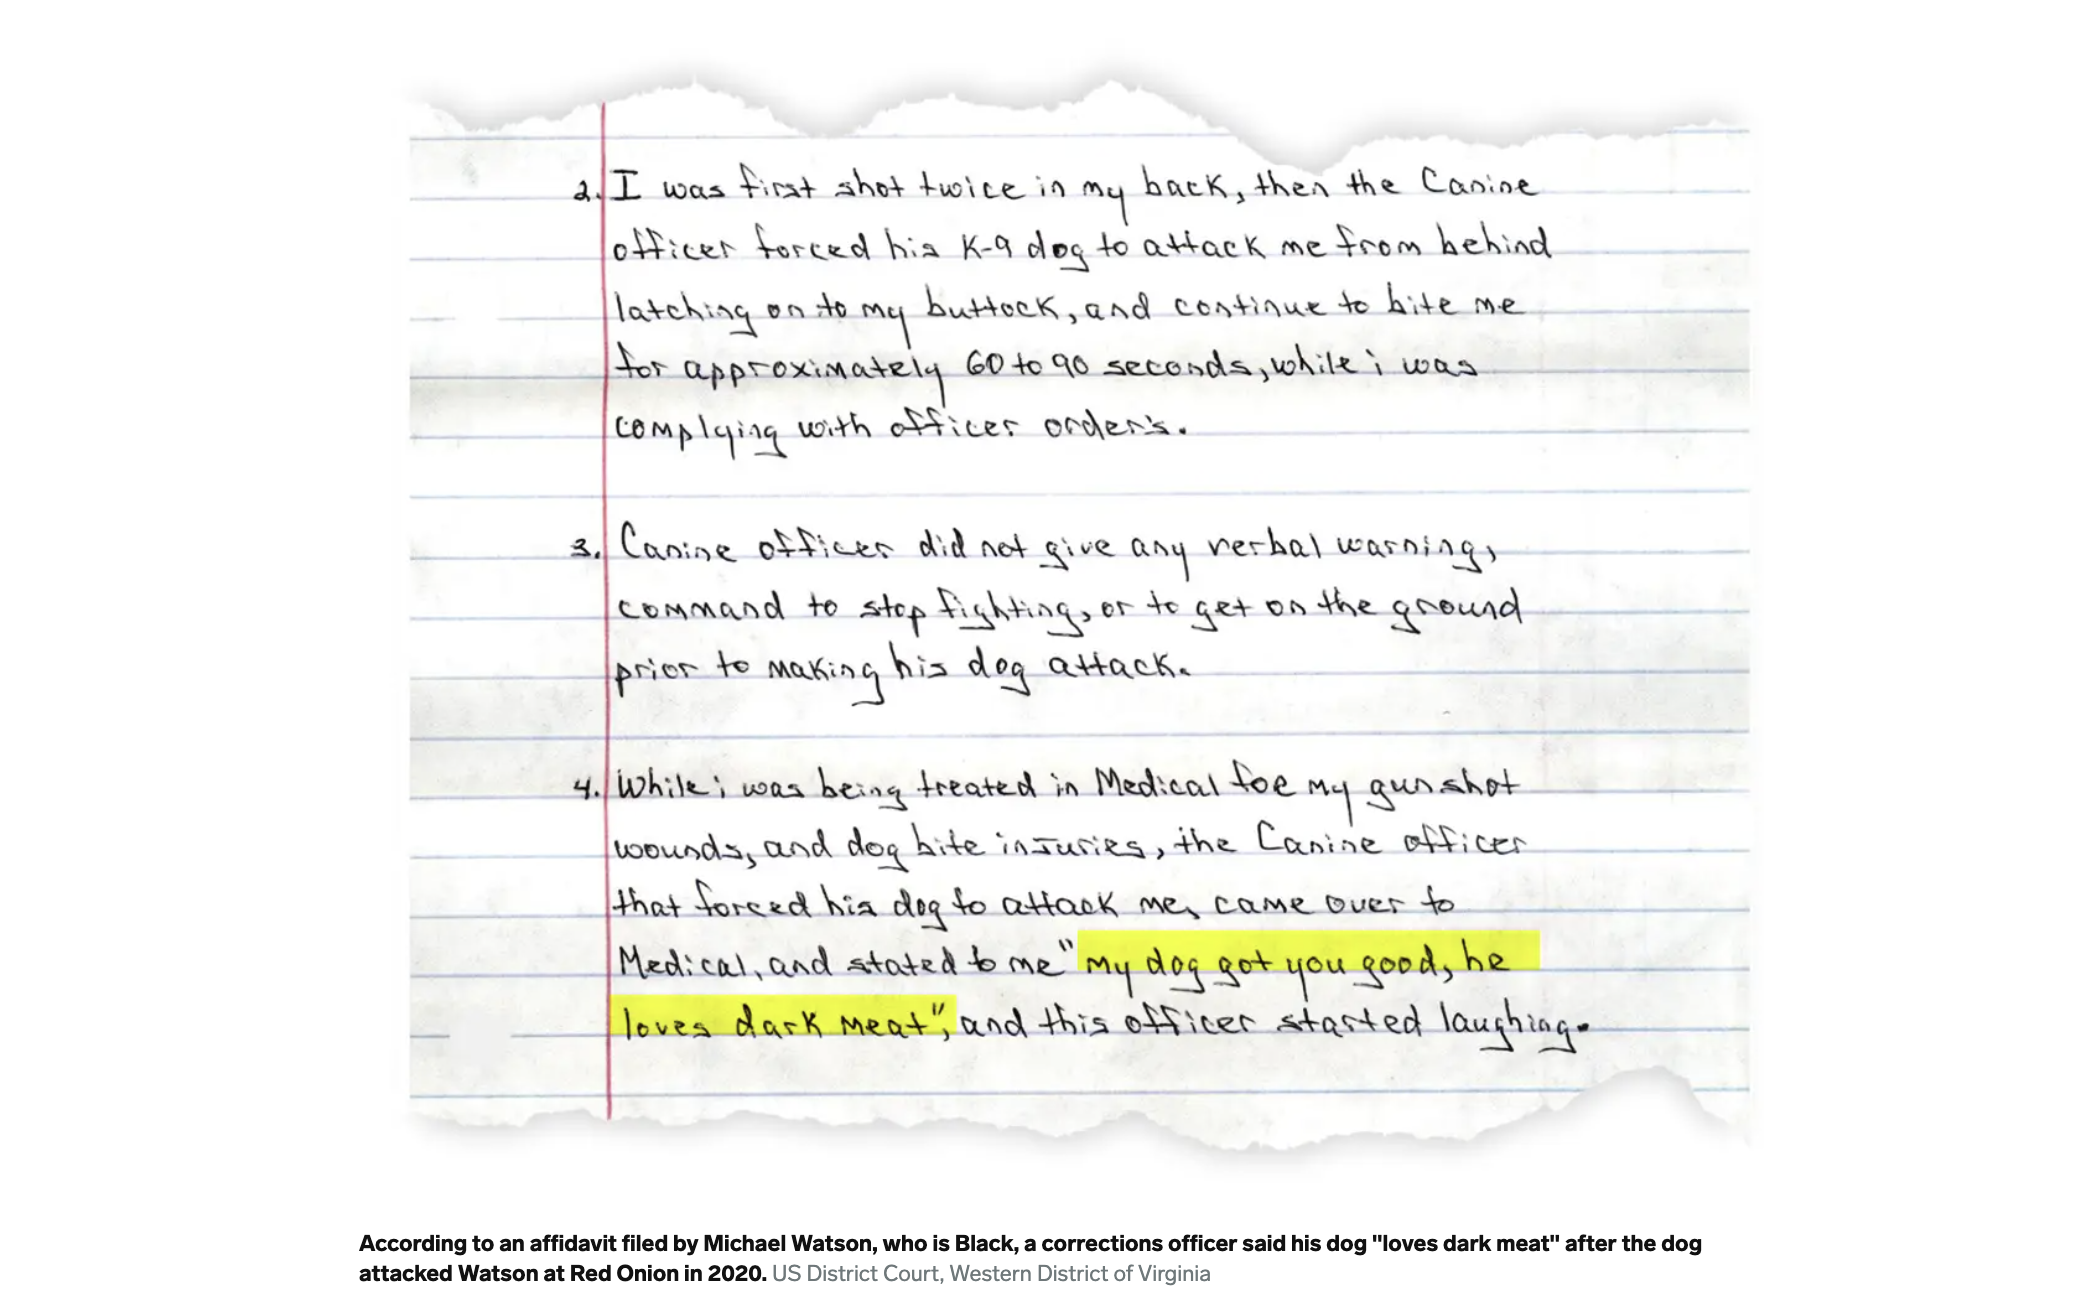 2. I was first shot twice in my back, then the Canine
officer forced his K-9 dog to attack me from behind
latching on to my buttock, and continue to bite me
for approximately 60 to 90 seconds, while i was
complying with officer order's.
3. Canine officer did not give any verbal warning,
command to stop fighting, or to get on the ground
prior to making his dog attack.
4. While i was being treated in Medical foe my gunshot
wounds, and dog bite injuries, the Canine officer
that forced his dog to attack me, came over to
Medical, and stated to me "my dog got you good, he
loves dark meat", and this officer started laughing.
According to an affidavit filed by Michael Watson, who is Black, a corrections officer said his dog "loves dark meat" after the dog
attacked Watson at Red Onion in 2020. US District Court, Western District of Virginia